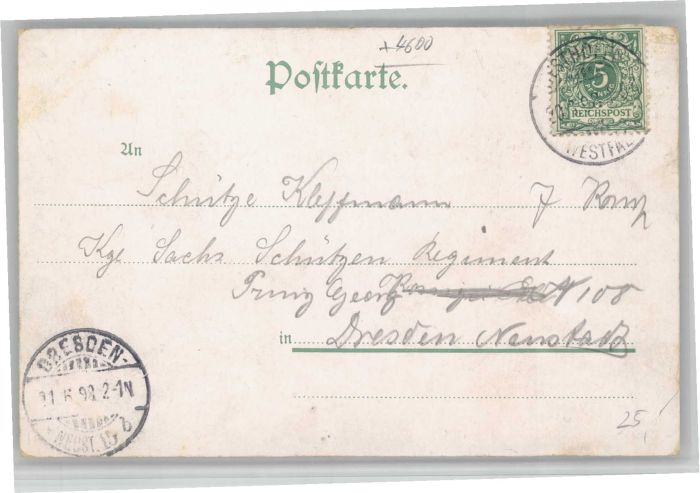 +4600
Postkarte.
5
REICHSPOST
WESTFAL
An
Schütze Kleffmann 7 Komp
Kgl Sächs Schützen Regiment
Prinz Georg N 108
in Dresden Neustadt
DRESDEN-
NEUST.
b
25